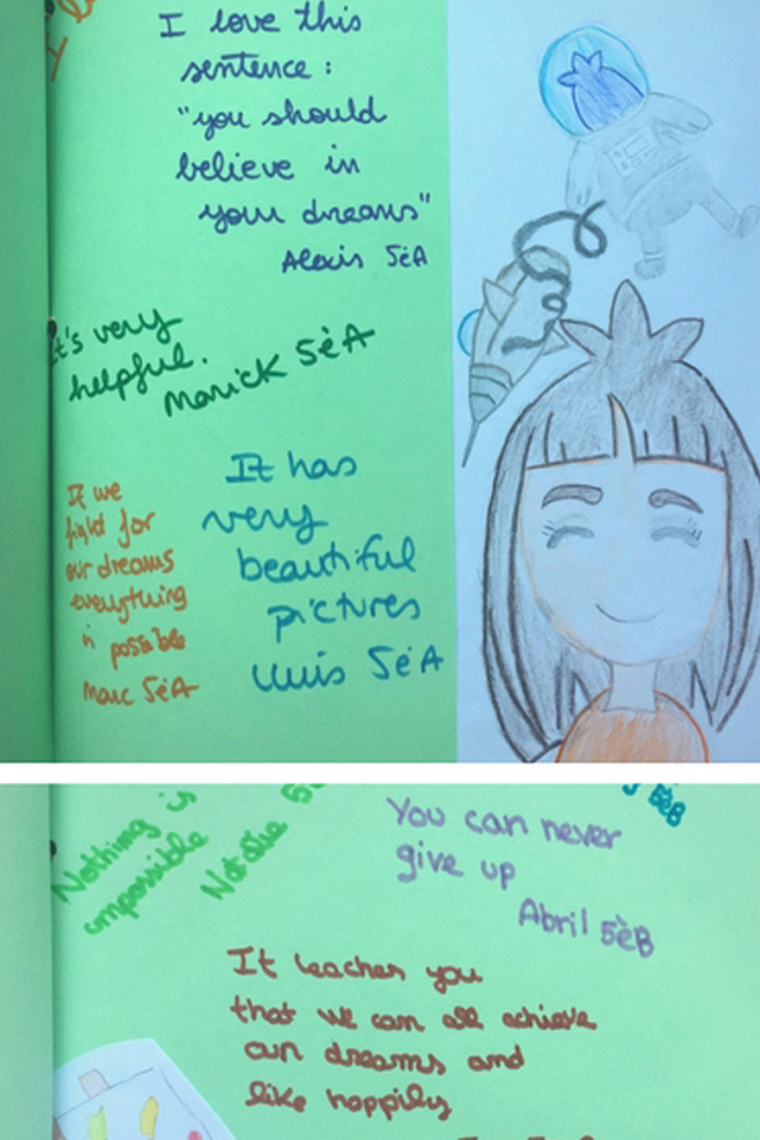 I love this
sentence:
"you should
believe in
your dreams"
Alexis 5èA
It's very
helpful.
Marick 5èA
It has
very
beautiful
pictures
5èA
If we
fight for
our dreams
everything
is possible
Marc 5èA
Nothing is
impossible
Natalia
You can never
give up
Abril 5èB
5èB
It teaches you
that we can all achieve
our dreams and
like happily